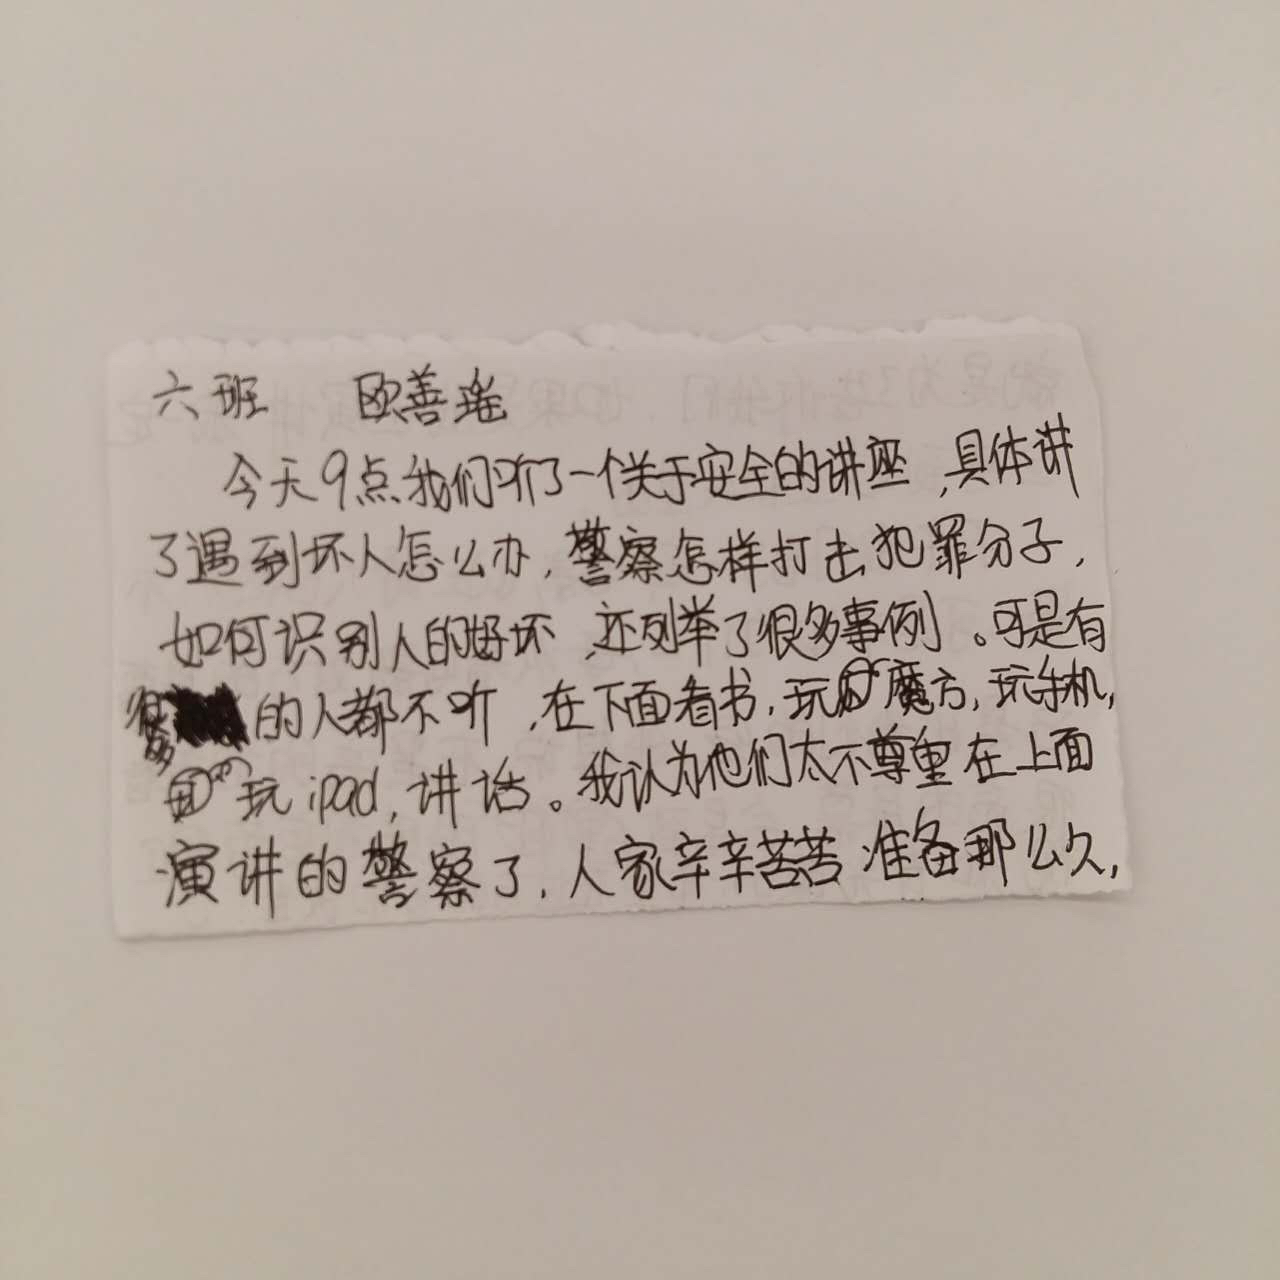 六班 欧善瑶
今天9点我们听了一个关于安全的讲座,具体讲
了遇到坏人怎么办,警察怎样打击犯罪分子,
如何识别人的好坏,还列举了很多事例。可是有
很多的人都不听,在下面看书,玩魔方,玩手机,
玩ipad,讲话。我认为他们太不尊重在上面
演讲的警察了,人家辛辛苦苦准备那么久,